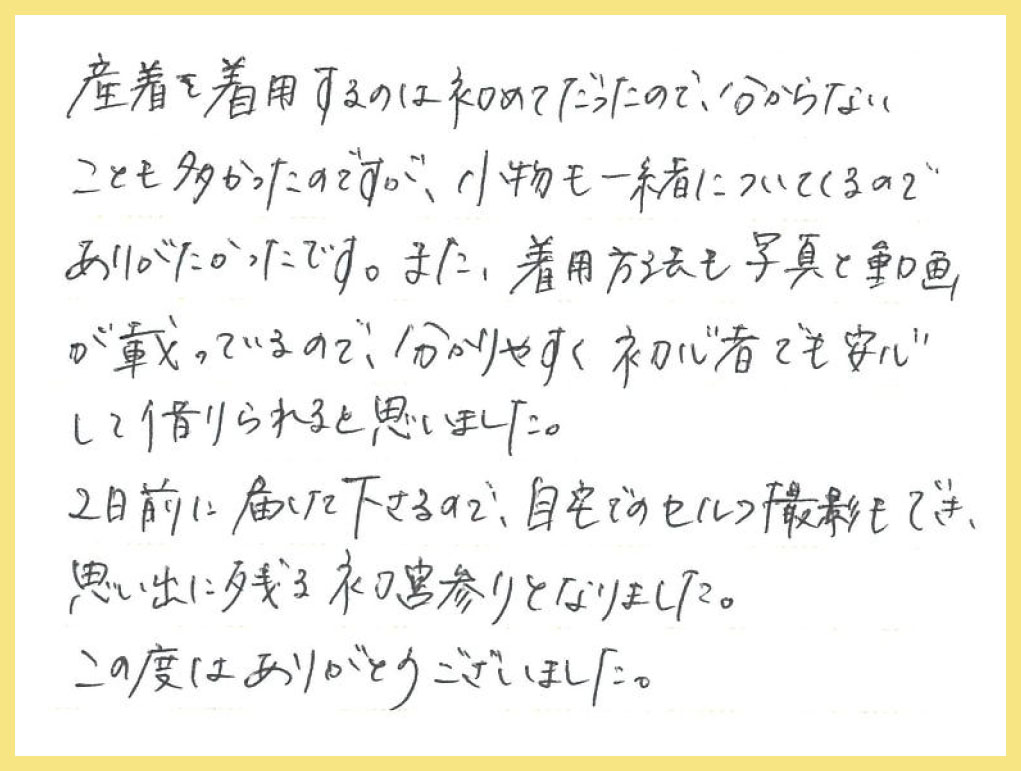 産着を着用するのは初めてだったので、分からない
ことも多かったのですが、小物も一緒についてくるので
ありがたかったです。また、着用方法も写真と動画
が載っているので、分かりやすく初心者でも安心
して借りられると思いました。
2日前に届けて下さるので、自宅でのセルフ撮影もでき、
思い出に残る初宮参りとなりました。
この度はありがとうございました。